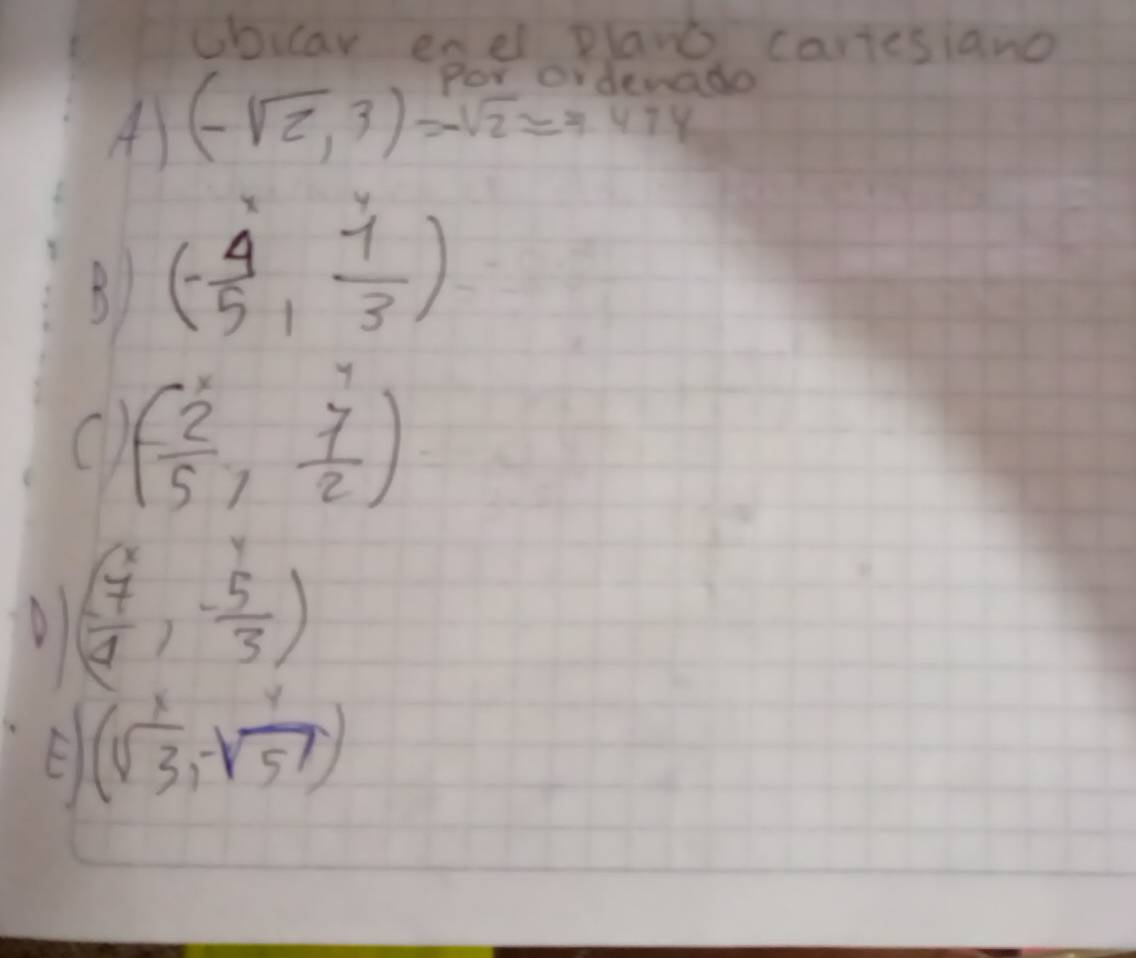 Ubicar en el plano cartesiano
Par ordenado
A) (-√2, 3) = -√2 ≈
x y
B) (-4/5, 1/3)
x y
C) (-2/5, 7/2)
x y
D) (-7/4, -5/3)
x y
E) (√3, -√5)